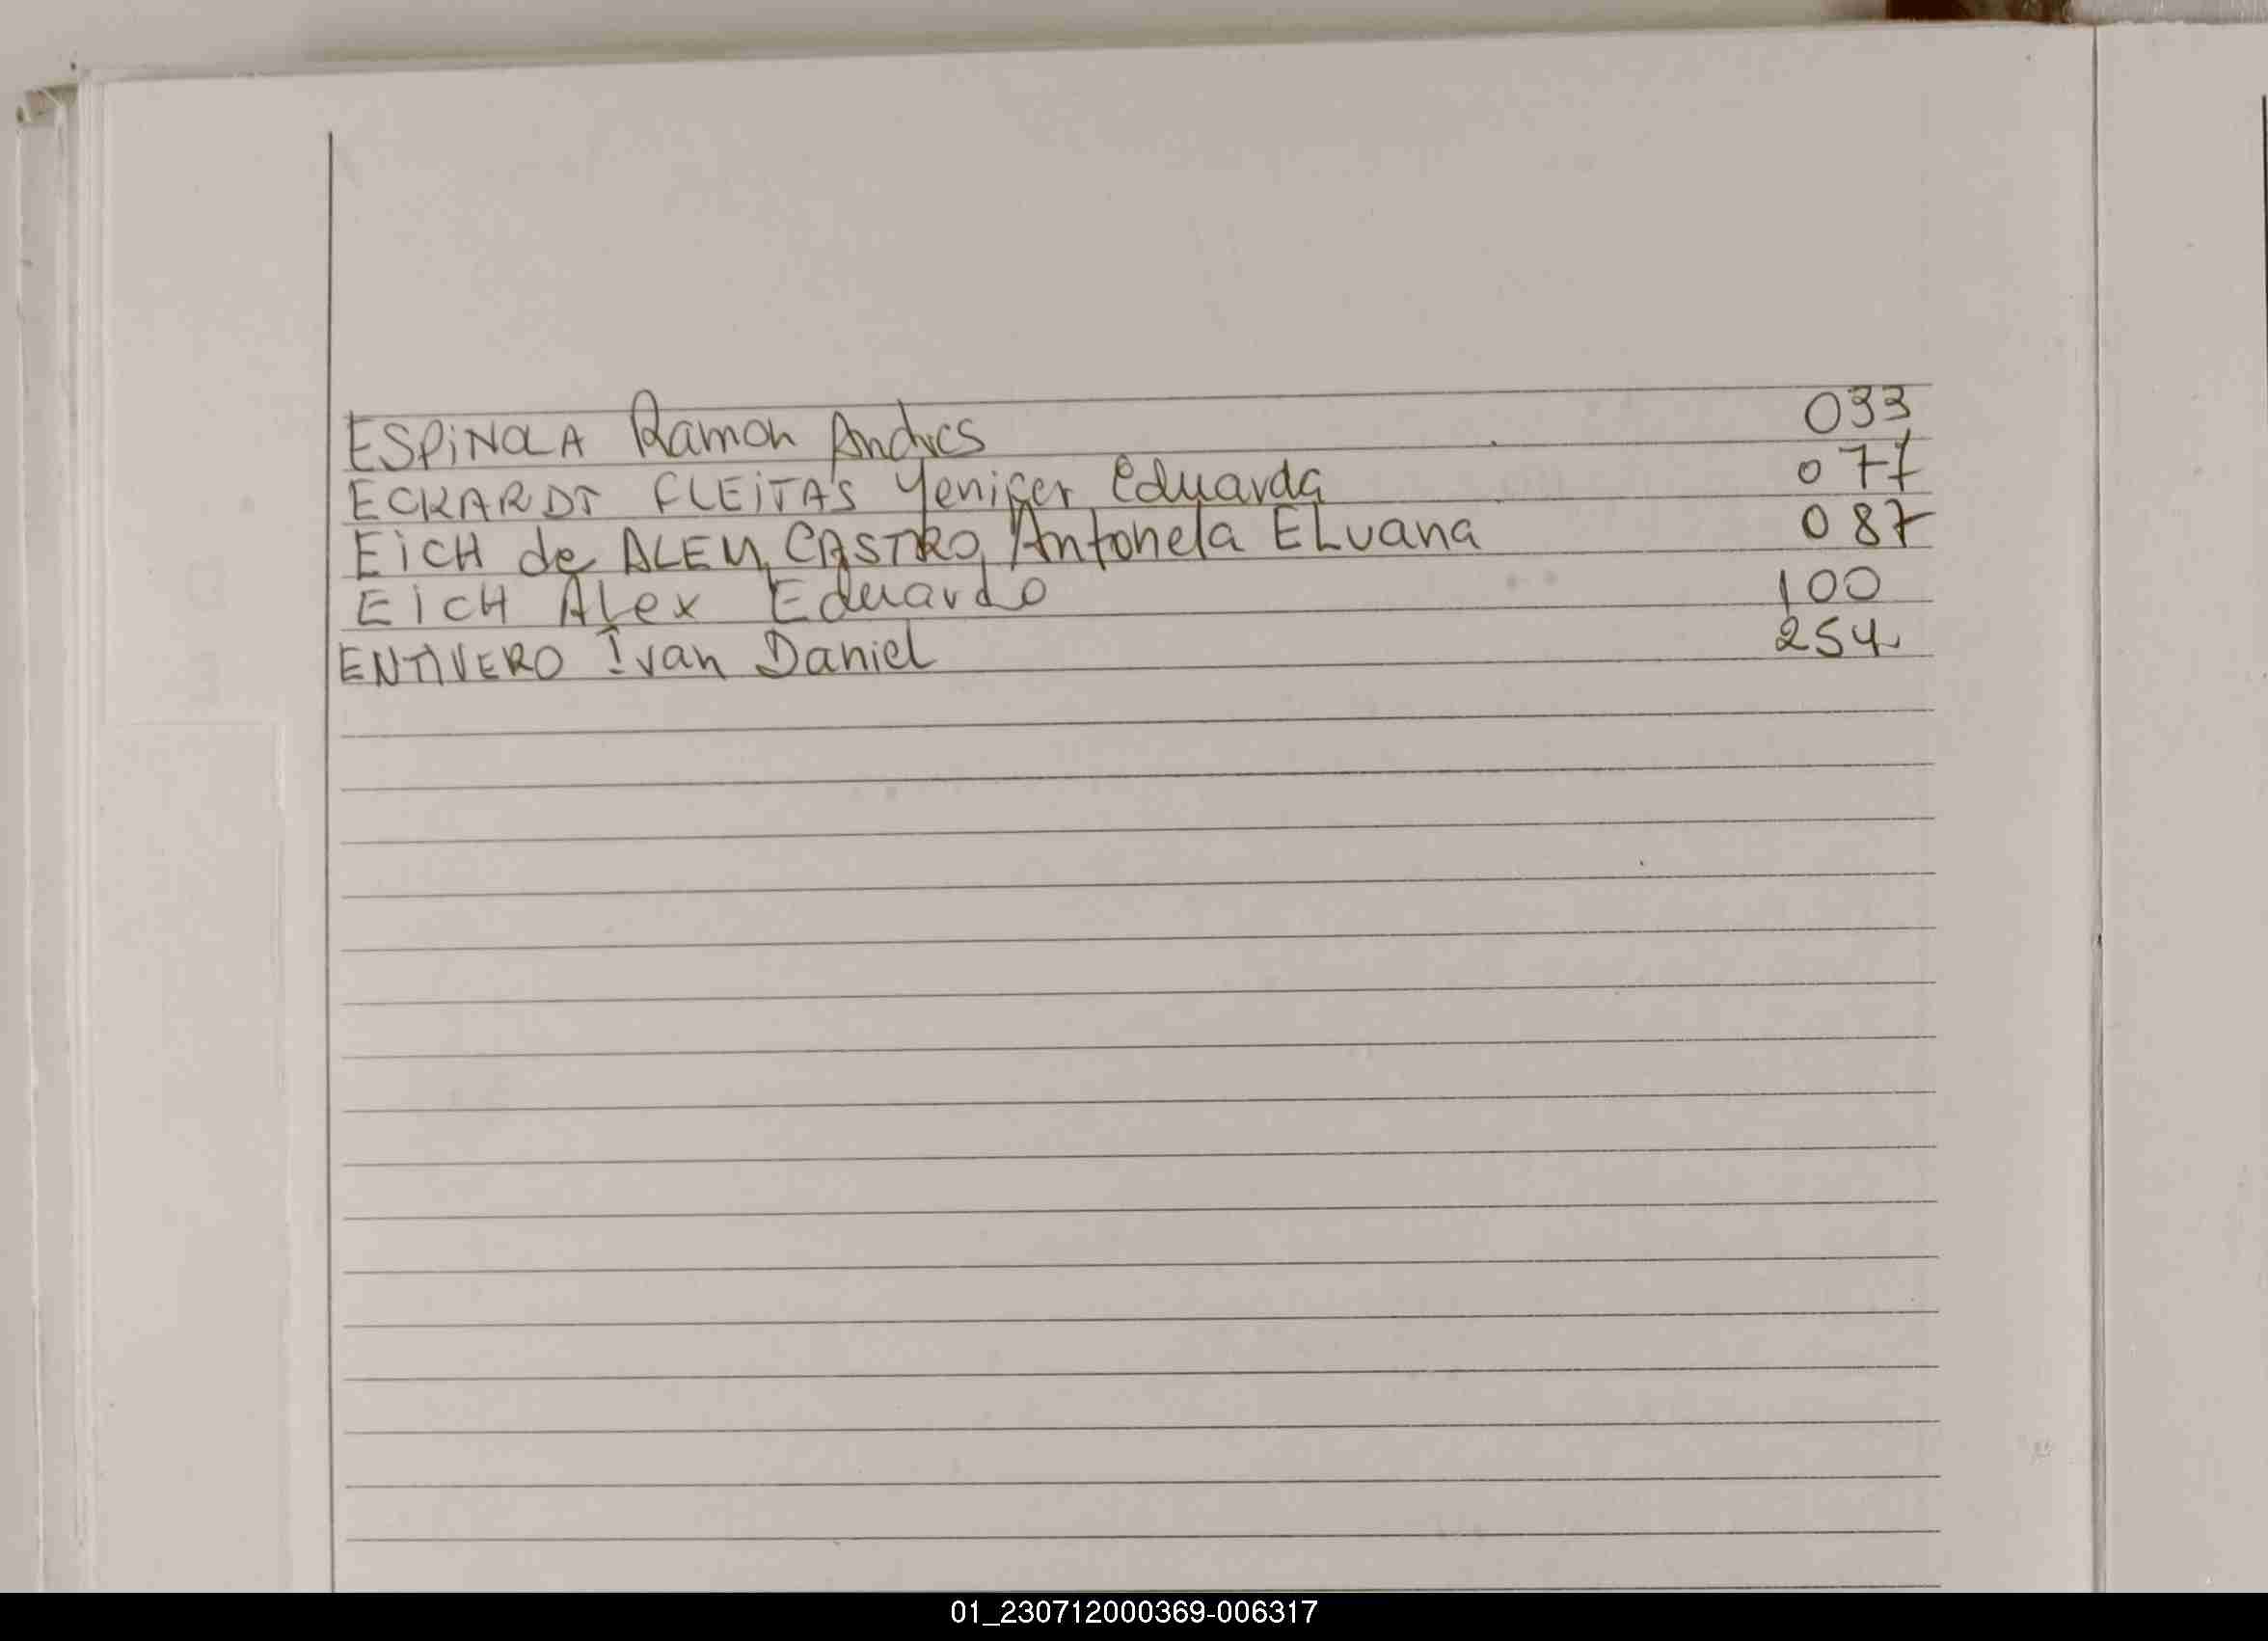 ESPiNOLA Ramon Andres 033
ECKARDT FLEiTAS Yenifer Eduarda 077
EiCH de ALEM CASTRO Antonela ELuana 087
EicH Alex Eduardo 100
ENTIVERO Ivan Daniel 254
01_230712000369-006317